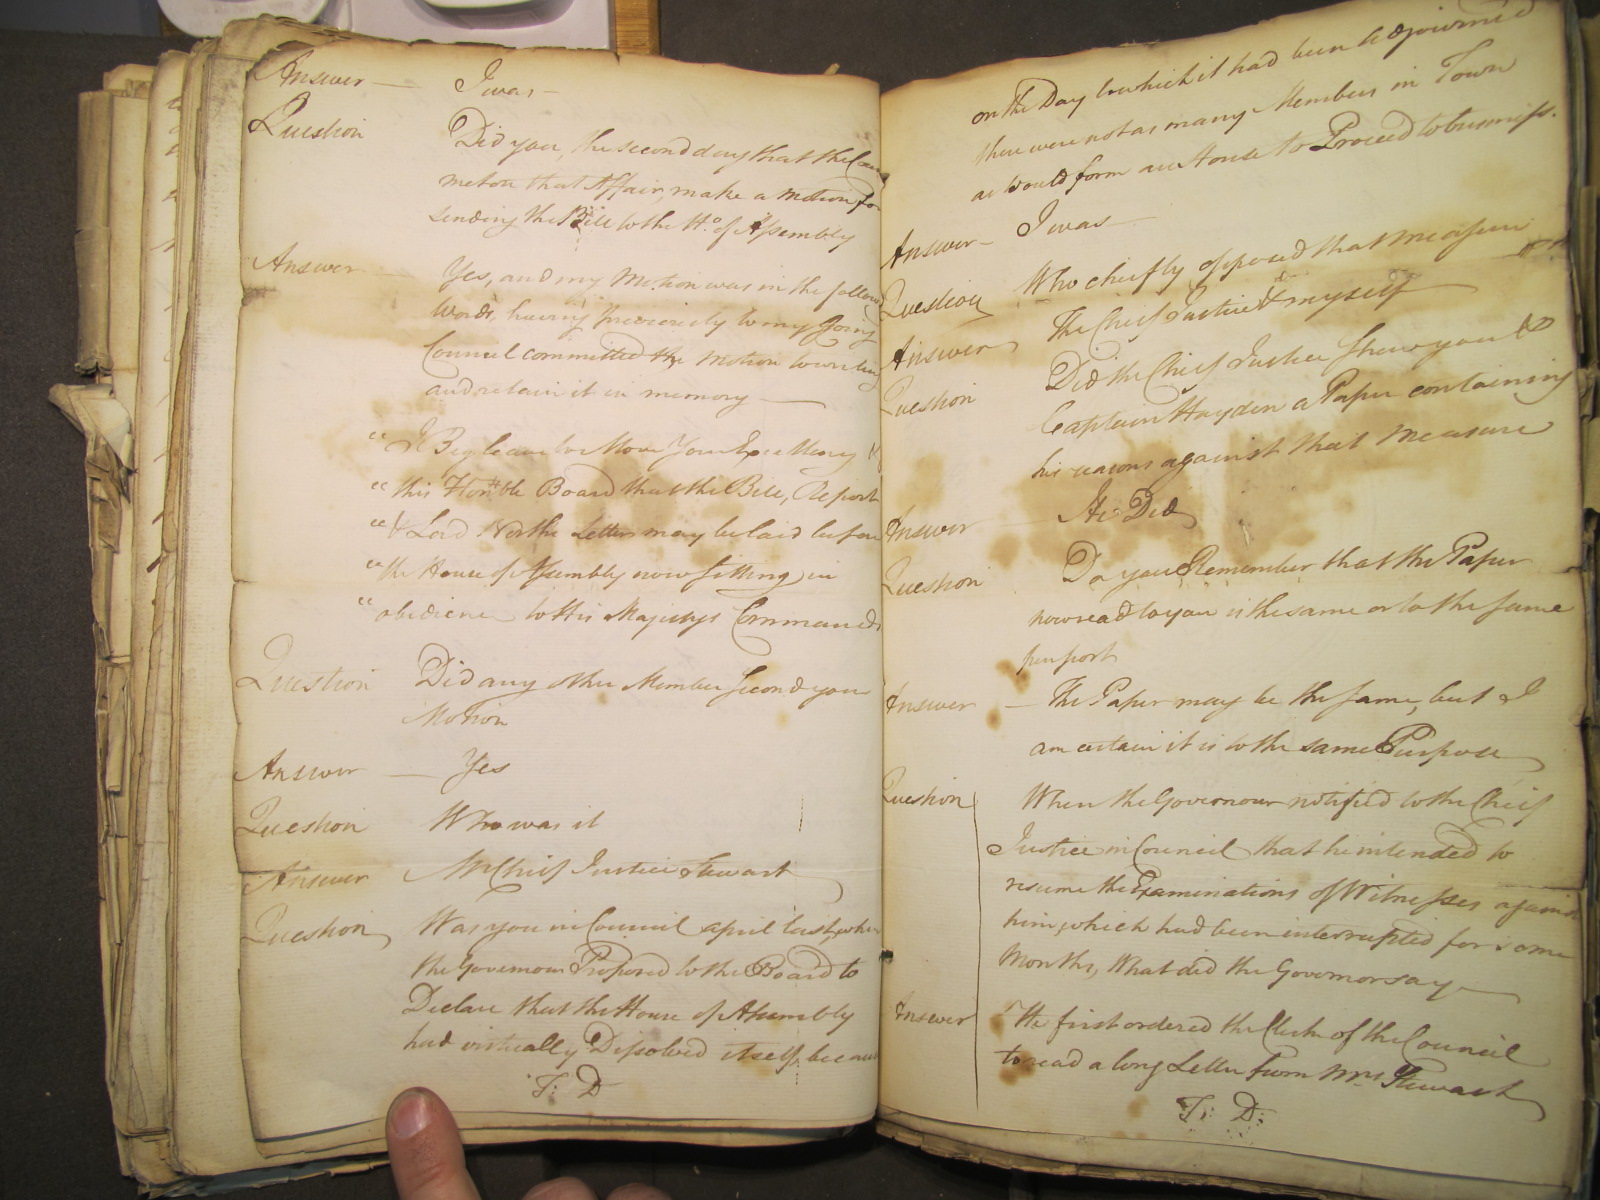 Answer — I was —
Question Did you, the second day that the
met on that Affair, make a Motion for
sending the Bill to the Ho. of Assembly
Answer — Yes, and my Motion was in the
Words, having previously to my Going
Council committed the Motion to writing
and retain it in memory —
"I Beg leave to Move Your Excellency &
"this Honble Board that the Bill, Report
"& Lord North's Letter may be laid before
"the House of Assembly now sitting, in
"obedience to His Majestys Commands
Question Did any other Member second your
Motion
Answer — Yes
Question Who was it
Answer Mr Chief Justice Stewart
Question Was you in Council april last, when
the Governour Proposed to the Board to
Declare that the House of Assembly
had virtually Dissolved itself, because
T: D
on the Day to which it had been Adjourned
there were not as many Members in Town
as would form an House to Proceed to business.
Answer — I was —
Question Who chiefly opposed that measure
Answer The Chief Justice & myself
Question Did the Chief Justice shew you &
Captain Hayden a Paper containing
his reasons against that Measure
Answer He Did
Question Do you Remember that the Paper
now read to you is the same or to the same
purport
Answer — The Paper may be the same, but I
am certain it is to the same Purpose
Question When the Governour notified to the Chief
Justice in Council that he intended to
resume the Examinations of Witnesses against
him, which had been interrupted for some
Months, What did the Governor say
Answer He first ordered the Clerk of the Council
to read a long Letter from Mrs Stewart
T: D: